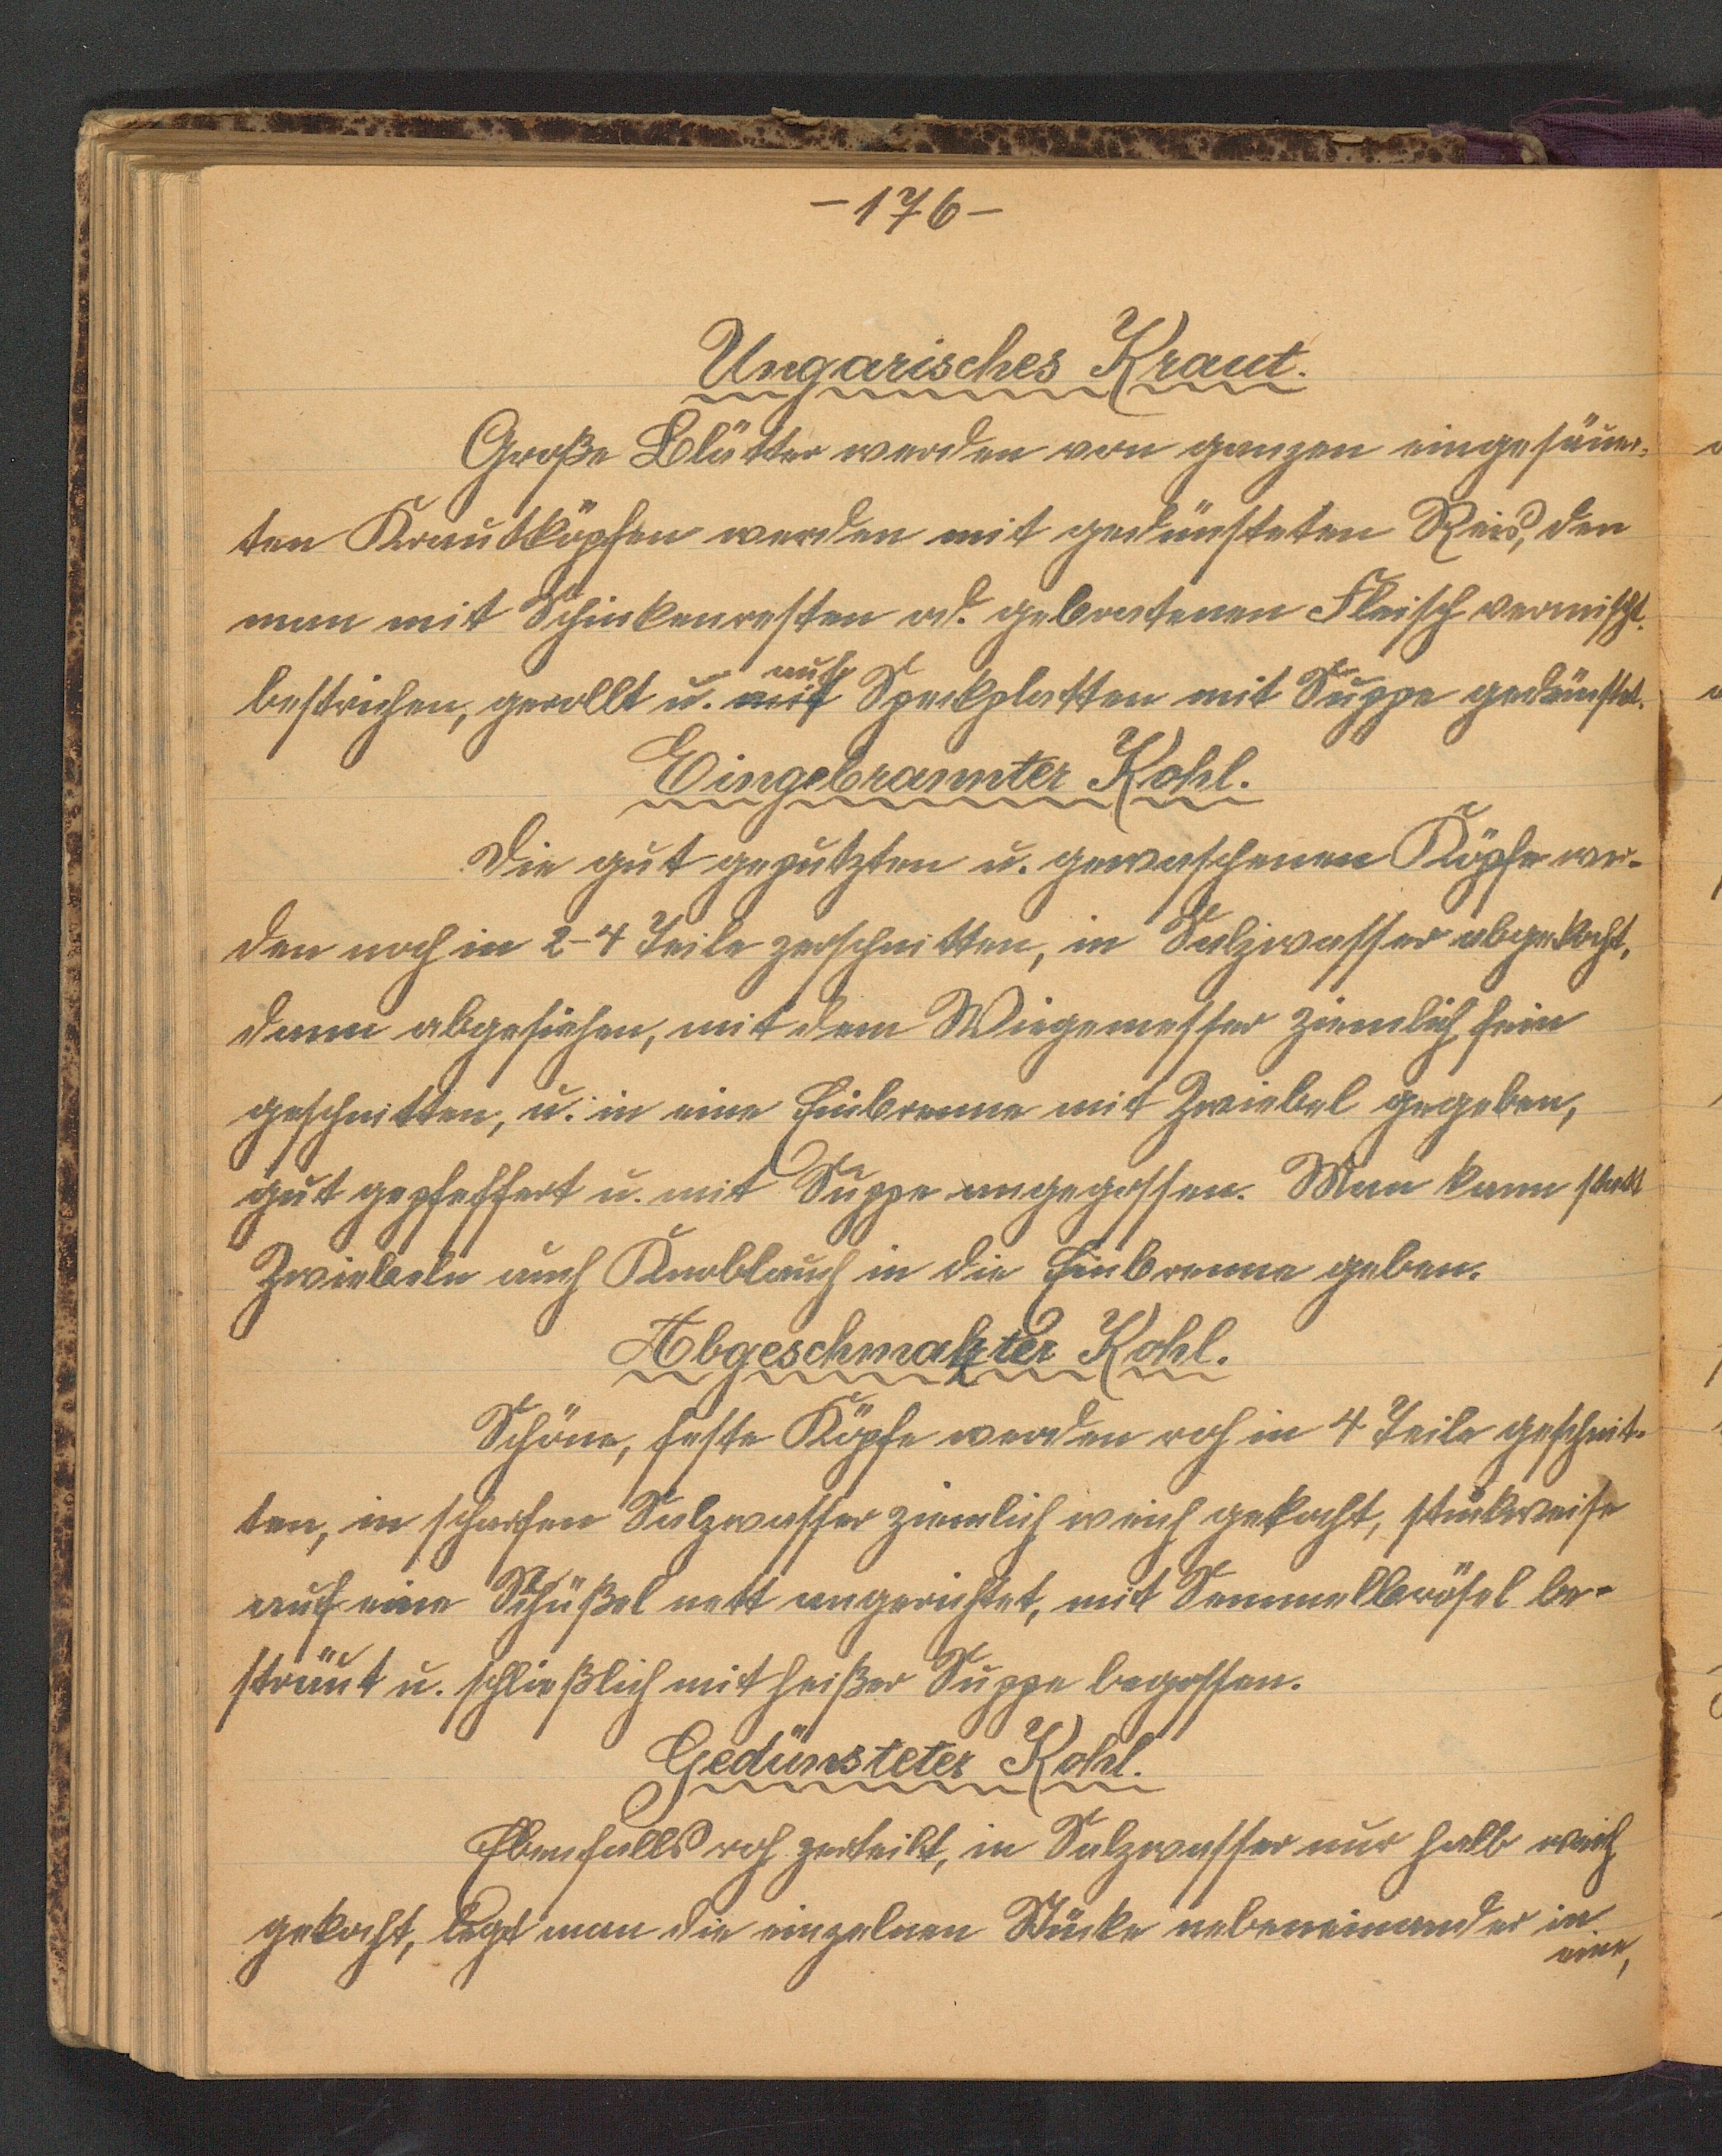 -176-
Ungarisches Kraut.
Große Blätter werden von ganzen eingesäuer-
ten Krautköpfen werden mit gedünsteten Reis, den
man mit Schinkenresten od. gebratenen Fleisch vermischt.
bestrichen, gerollt u. mit auf Speckplatten mit Suppe gedünstet.
Eingebrannter Kohl.
Die gut geputzten u. gewaschenen Köpfe wer-
den noch in 2-4 Teile zerschnitten, in Salzwasser abgekocht,
dann abgesiehen, mit dem Wiegemesser ziemlich fein
geschnitten, u. in eine Einbrenne mit Zwiebel gegeben,
gut gepfeffert u. mit Suppe angegossen. Man kann statt
Zwiebeln auch Knoblauch in die Einbrenne geben.
Abgeschmalzter Kohl.
Schöne, feste Köpfe werden roh in 4 Teile geschnit-
ten, in scharfen Salzwasser ziemlich weich gekocht, stückweise
auf eine Schüßel nett angerichtet, mit Semmelbrösel be-
sträut u. schließlich mit heißer Suppe begossen.
Gedünsteter Kohl.
Ebenfalls roh zerteilt, in Salzwasser nur halb weich
gekocht, legt man die einzelnen Stücke nebeneinander in
eine,